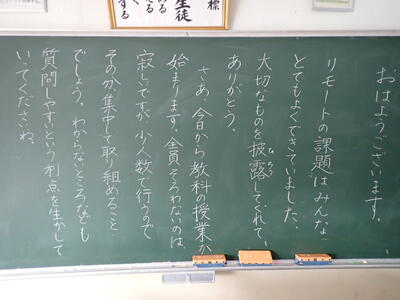 標
生徒
める
てる
する
おはようございます。
リモートの課題はみんな、
とてもよくできていました。
大切なものを披露してくれて、
ひろう
ありがとう。
さあ、今日から教科の授業が
始まります。全員そろわないのは、
寂しいですが、少人数で行うので
その分、集中して取り組めること
でしょう。わからないところなども
質問しやすいという利点を生かして
いってくださいね。